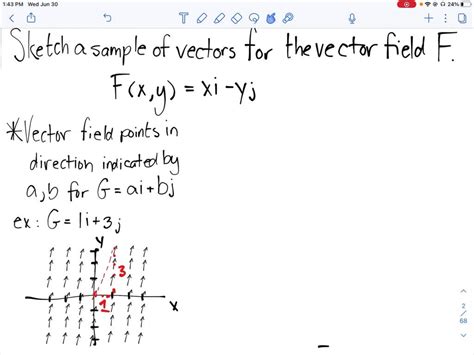 1:43 PM Wed Jun 30
24%
Sketch a sample of vectors for the vector field F.
F(x,y) = xi - yj
*Vector field points in
direction indicated by
a,b for G = ai + bj
ex: G = 1i + 3j
y
3
1
x
2
68